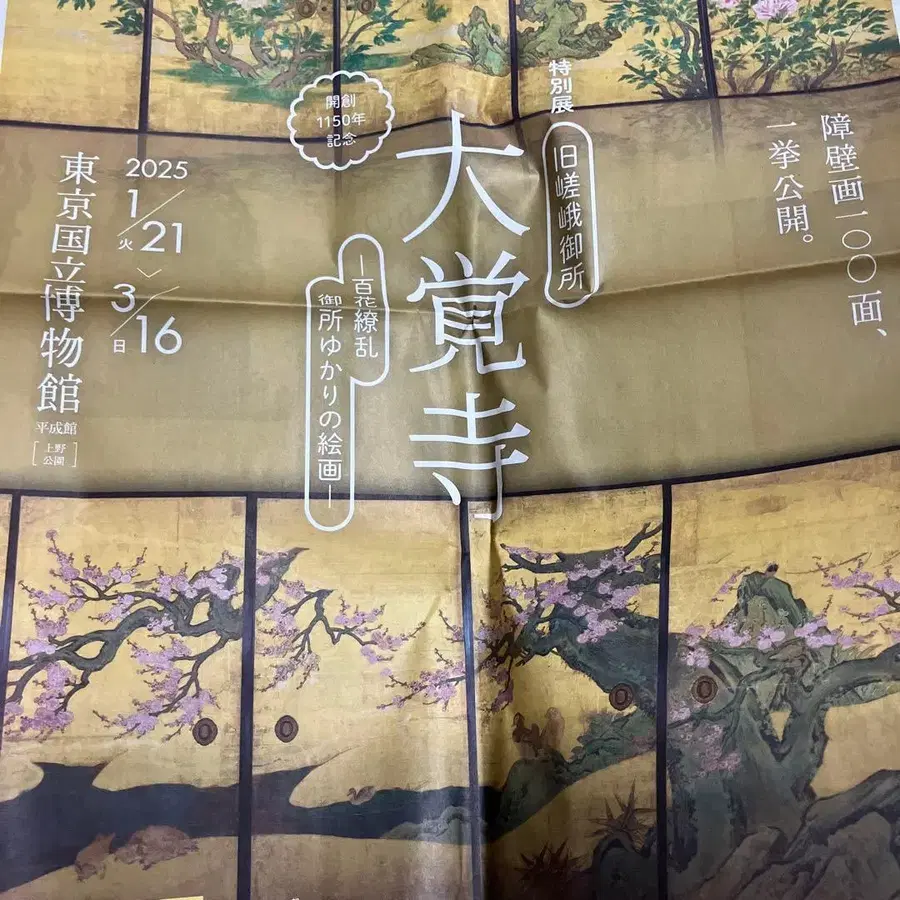 障壁画一〇〇面、
一挙公開。
特別展
旧嵯峨御所
大覚寺
開創
1150年
記念
―百花繚乱
御所ゆかりの絵画―
2025
1/21火
〉
3/16日
東京国立博物館
平成館
[上野
公園]